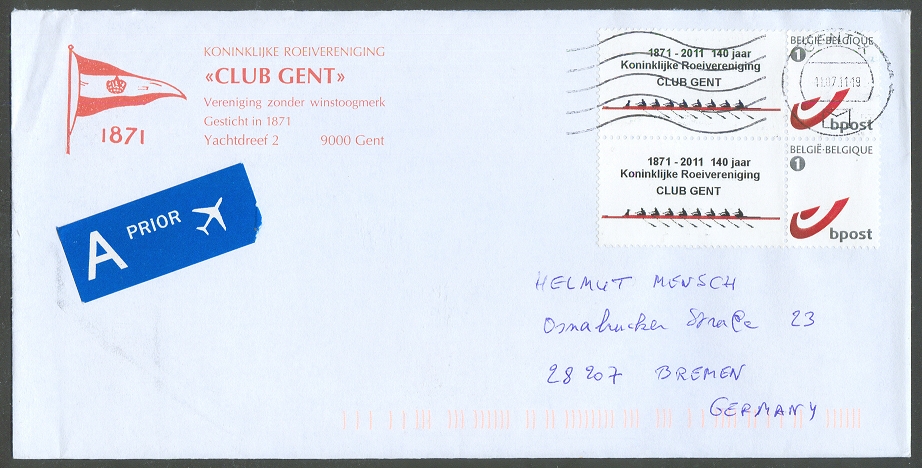 KONINKLIJKE ROEIVERENIGING
«CLUB GENT»
Vereniging zonder winstoogmerk
Gesticht in 1871
Yachtdreef 2 9000 Gent
1871
A PRIOR
1871 - 2011 140 jaar
Koninklijke Roeivereniging
CLUB GENT
BELGIË-BELGIQUE
1
11.07.11-19
bpost
1871 - 2011 140 jaar
Koninklijke Roeivereniging
CLUB GENT
BELGIË-BELGIQUE
1
bpost
HELMUT MENSCH
Osnabrucker Straße 23
28207 BREMEN
GERMANY